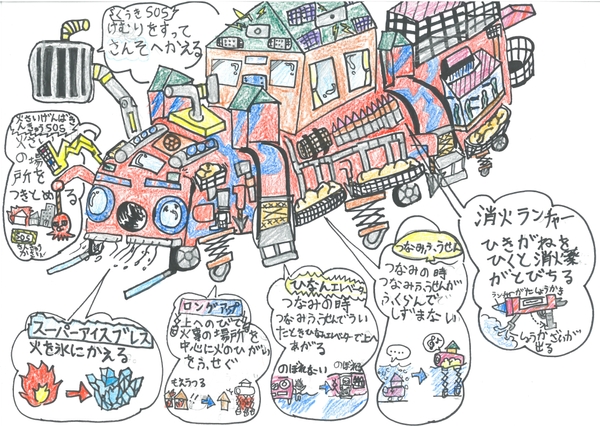 くうきSOS
けむりをすって
さんそへかえる
火さいげんば
きんきゅうSOS
火さい
の場
所を
つきとめる
SOS
消火ランチャー
ひきがねを
ひくと消火薬
がとびちる
しょうかざいが
出る
つなみふうせん
つなみの時
つなみふうせんが
ふくらんで
しずまない
ひなんエレベーター
つなみの時
つなみふうせんでうい
たときひなんエレベーターで上へ
あがる
のぼれない
のぼれる
ロングアップ
上へのびて
火事の場所を
中心に火のひがい
をふせぐ
もえうつる
スーパーアイスブレス
火を氷にかえる